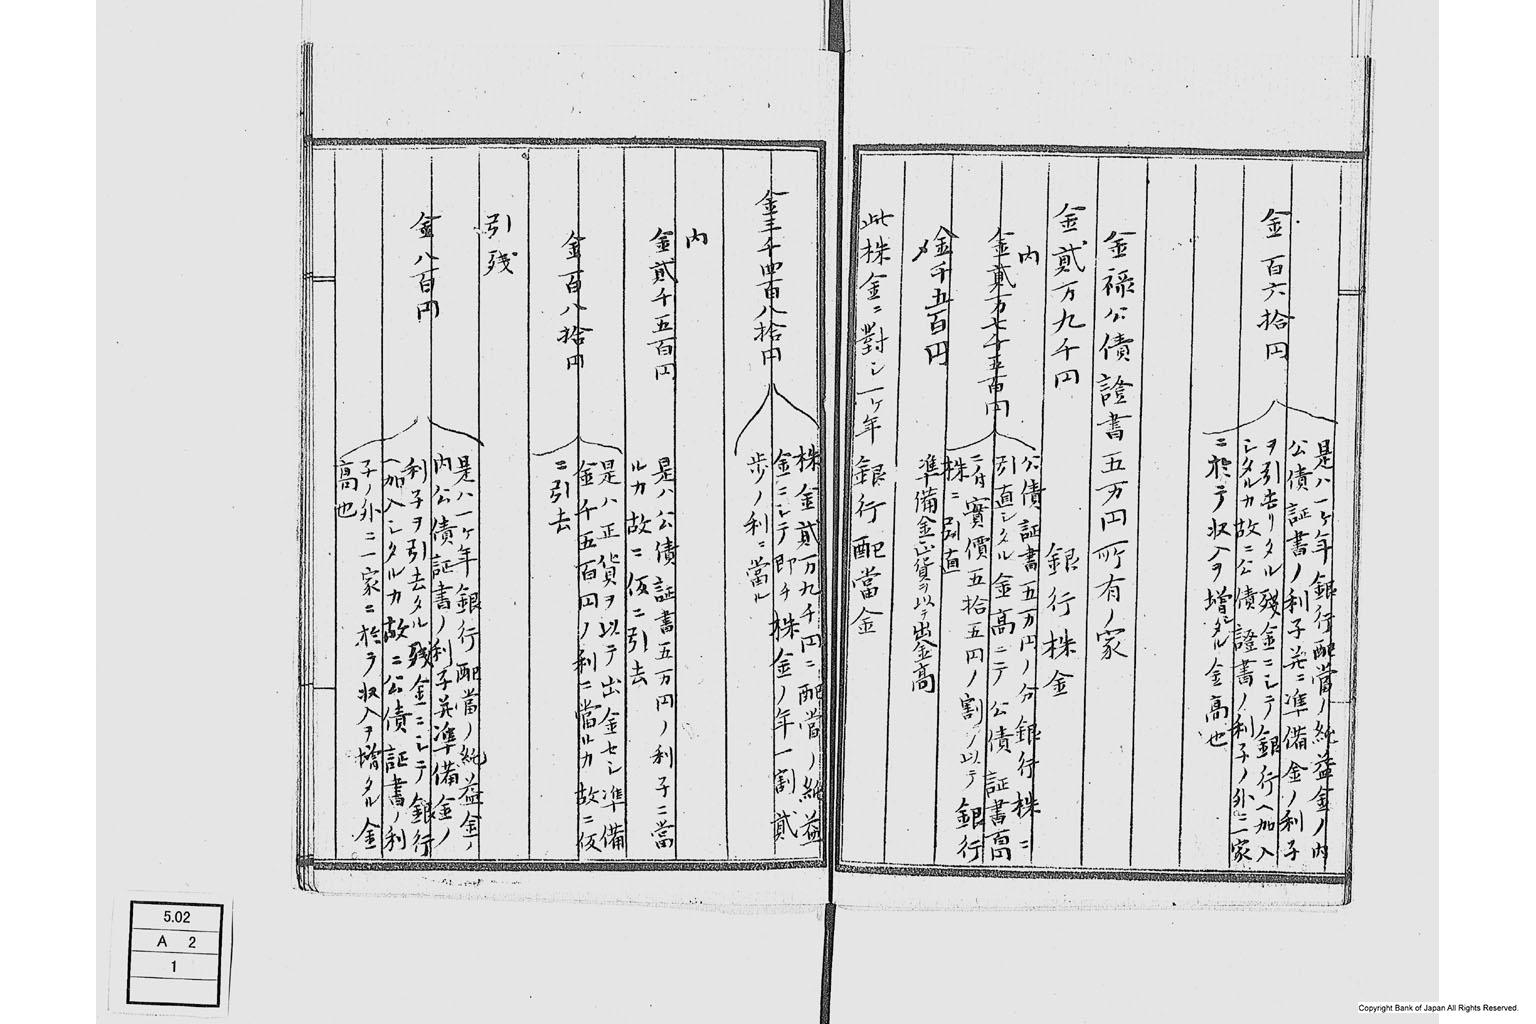 金百六拾円
是ハ一ケ年銀行配當ノ純益金ノ内
公債証書ノ利子并ニ準備金ノ利子
ヲ引去リタル残金ニシテ銀行ヘ加入
シタルカ故ニ公債證書ノ利子ノ外ニ一家
ニ於テ収入ヲ増シタル金高也
金禄公債證書五万円所有ノ家
金貳万九千円　銀行株金
内
金貳万七千五百円
公債証書五万円ノ分銀行株ニ
引直シタル金高ニテ公債証書百円
ニ付實價五拾五円ノ割ノ以テ銀行
株ニ引直
〆金千五百円
準備金正貨ヲ以テ出金高
此株金ニ對シ一ケ年銀行配當金
金三千四百八拾円
株金貳万九千円ニ配當ノ純益
金ニシテ即チ株金ノ年一割貳
歩ノ利ニ當ル
内
金貳千五百円
是ハ公債証書五万円ノ利子ニ當
ルカ故ニ仮ニ引去
金百八拾円
是ハ正貨ヲ以テ出金セシ準備
金千五百円ノ利ニ當ルカ故ニ仮
ニ引去
引残
金八百円
是ハ一ケ年銀行配當ノ純益金ノ
内公債証書ノ利子并準備金ノ
利子ヲ引去タル残金ニシテ銀行
ヘ加入シタルカ故ニ公債証書ノ利
子ノ外ニ一家ニ於テ収入ヲ増タル金
高也
5.02
A 2
1
Copyright Bank of Japan All Rights Reserved.